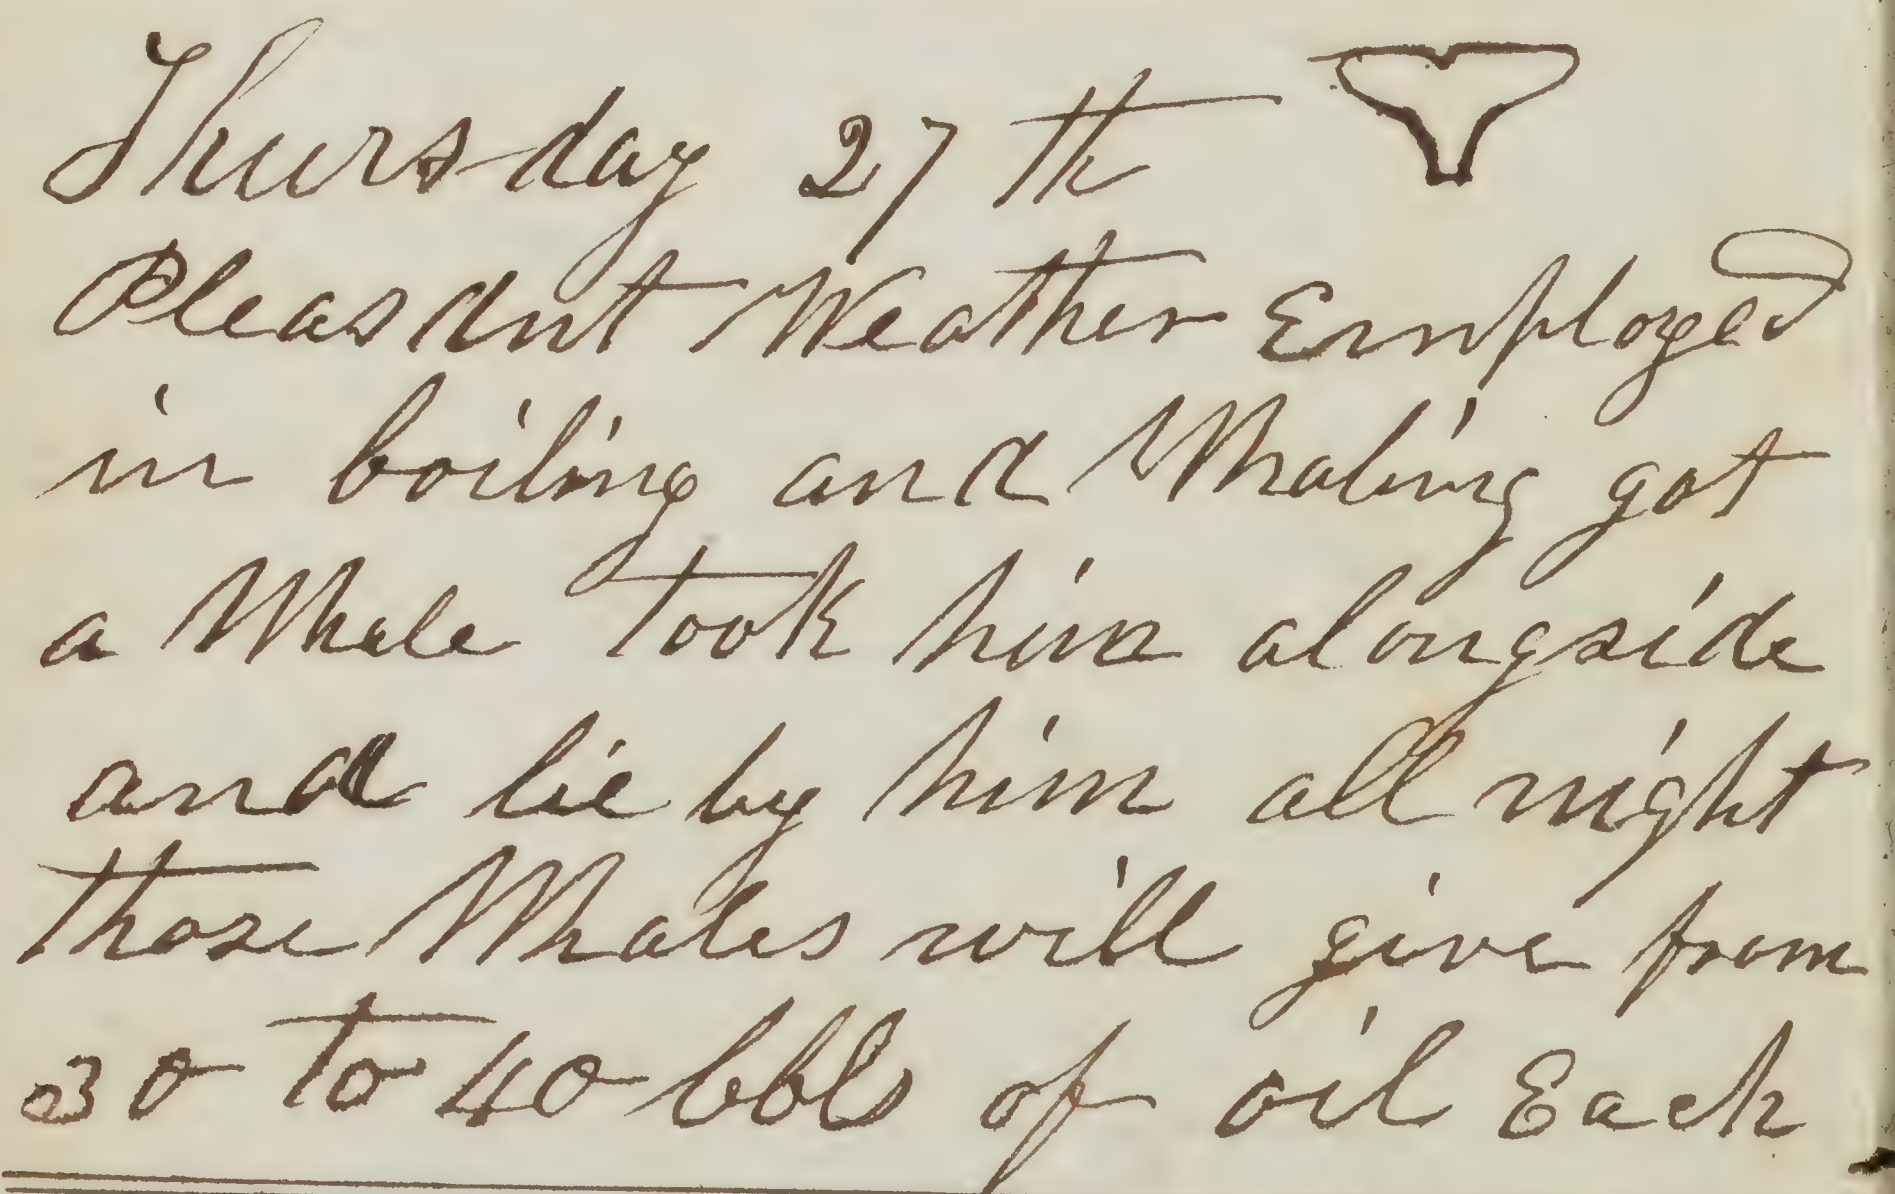 Thursday 27th
Pleasant Weather Employed
in boiling and Whaling got
a Whale took him alongside
and lie by him all night
those Whales will give from
30 to 40 bbls of oil Each